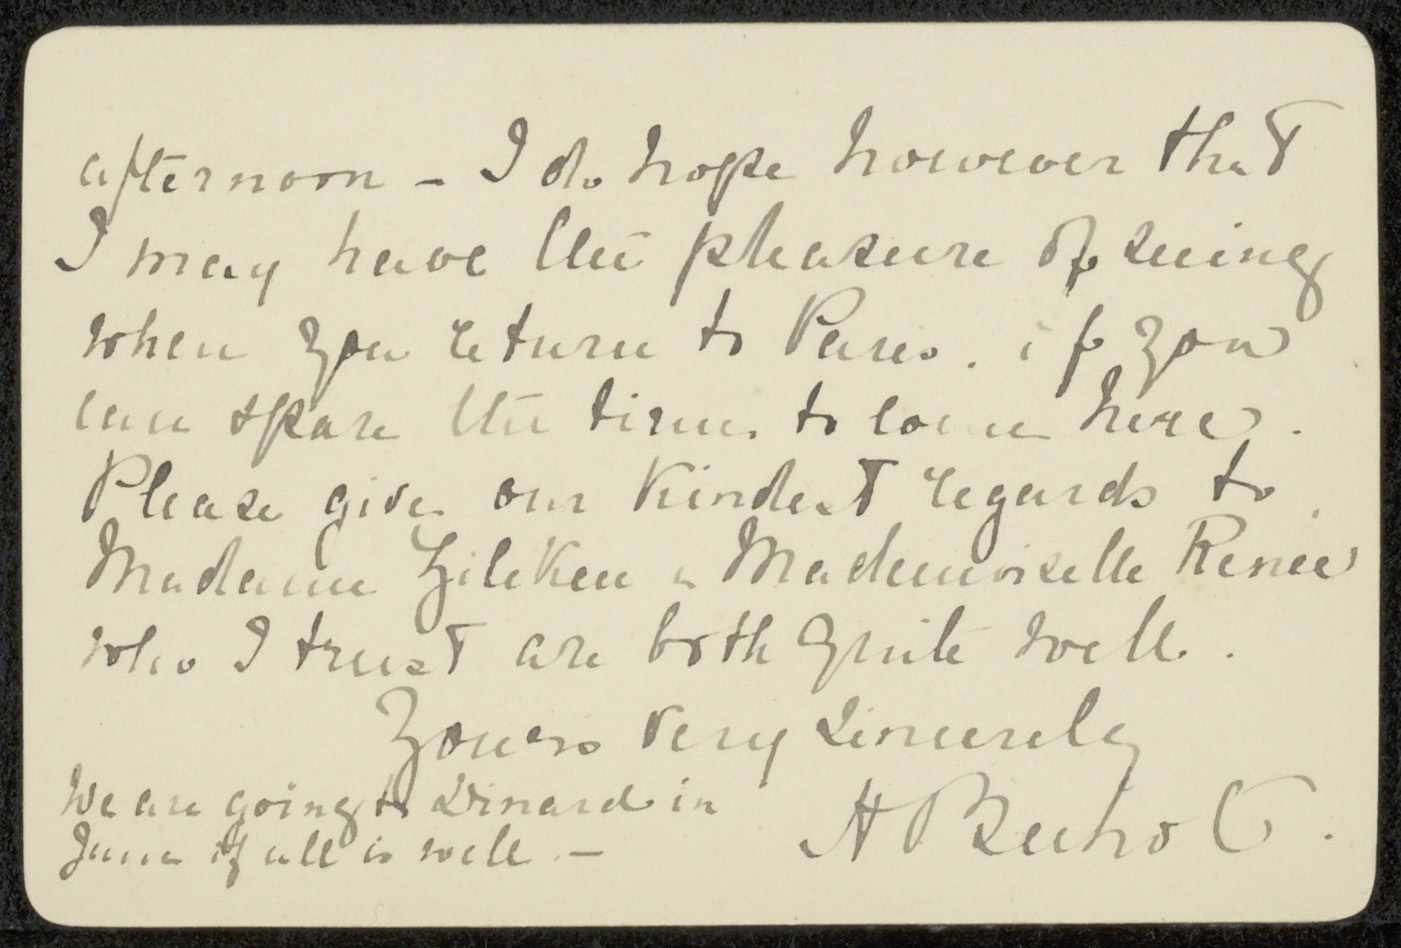 afternoon – I do hope however that
I may have the pleasure of seeing
when you return to Paris. if you
can spare the time to come here.
Please give our kindest regards to
Madame Zilcken & Mademoiselle Renée
who I trust are both quite well.
Yours very sincerely
H
We are going to Dinard in
June if all is well. –